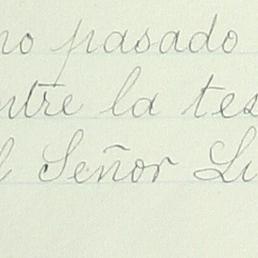 no pasado
ntre la tes
l Señor Lu